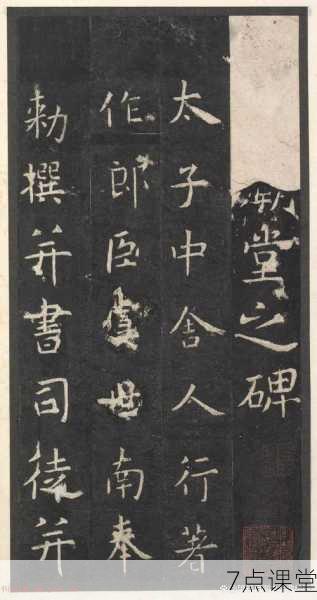 堂之碑
太子中舍人行著
作郎臣虞世南奉
勅撰并書司徒并
7点课堂